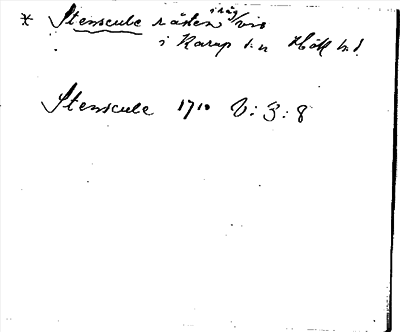 * Stenscule råsten i råg/vis
i Karup s:n Höks hd.
Stenscule 1710 V: 3: 8